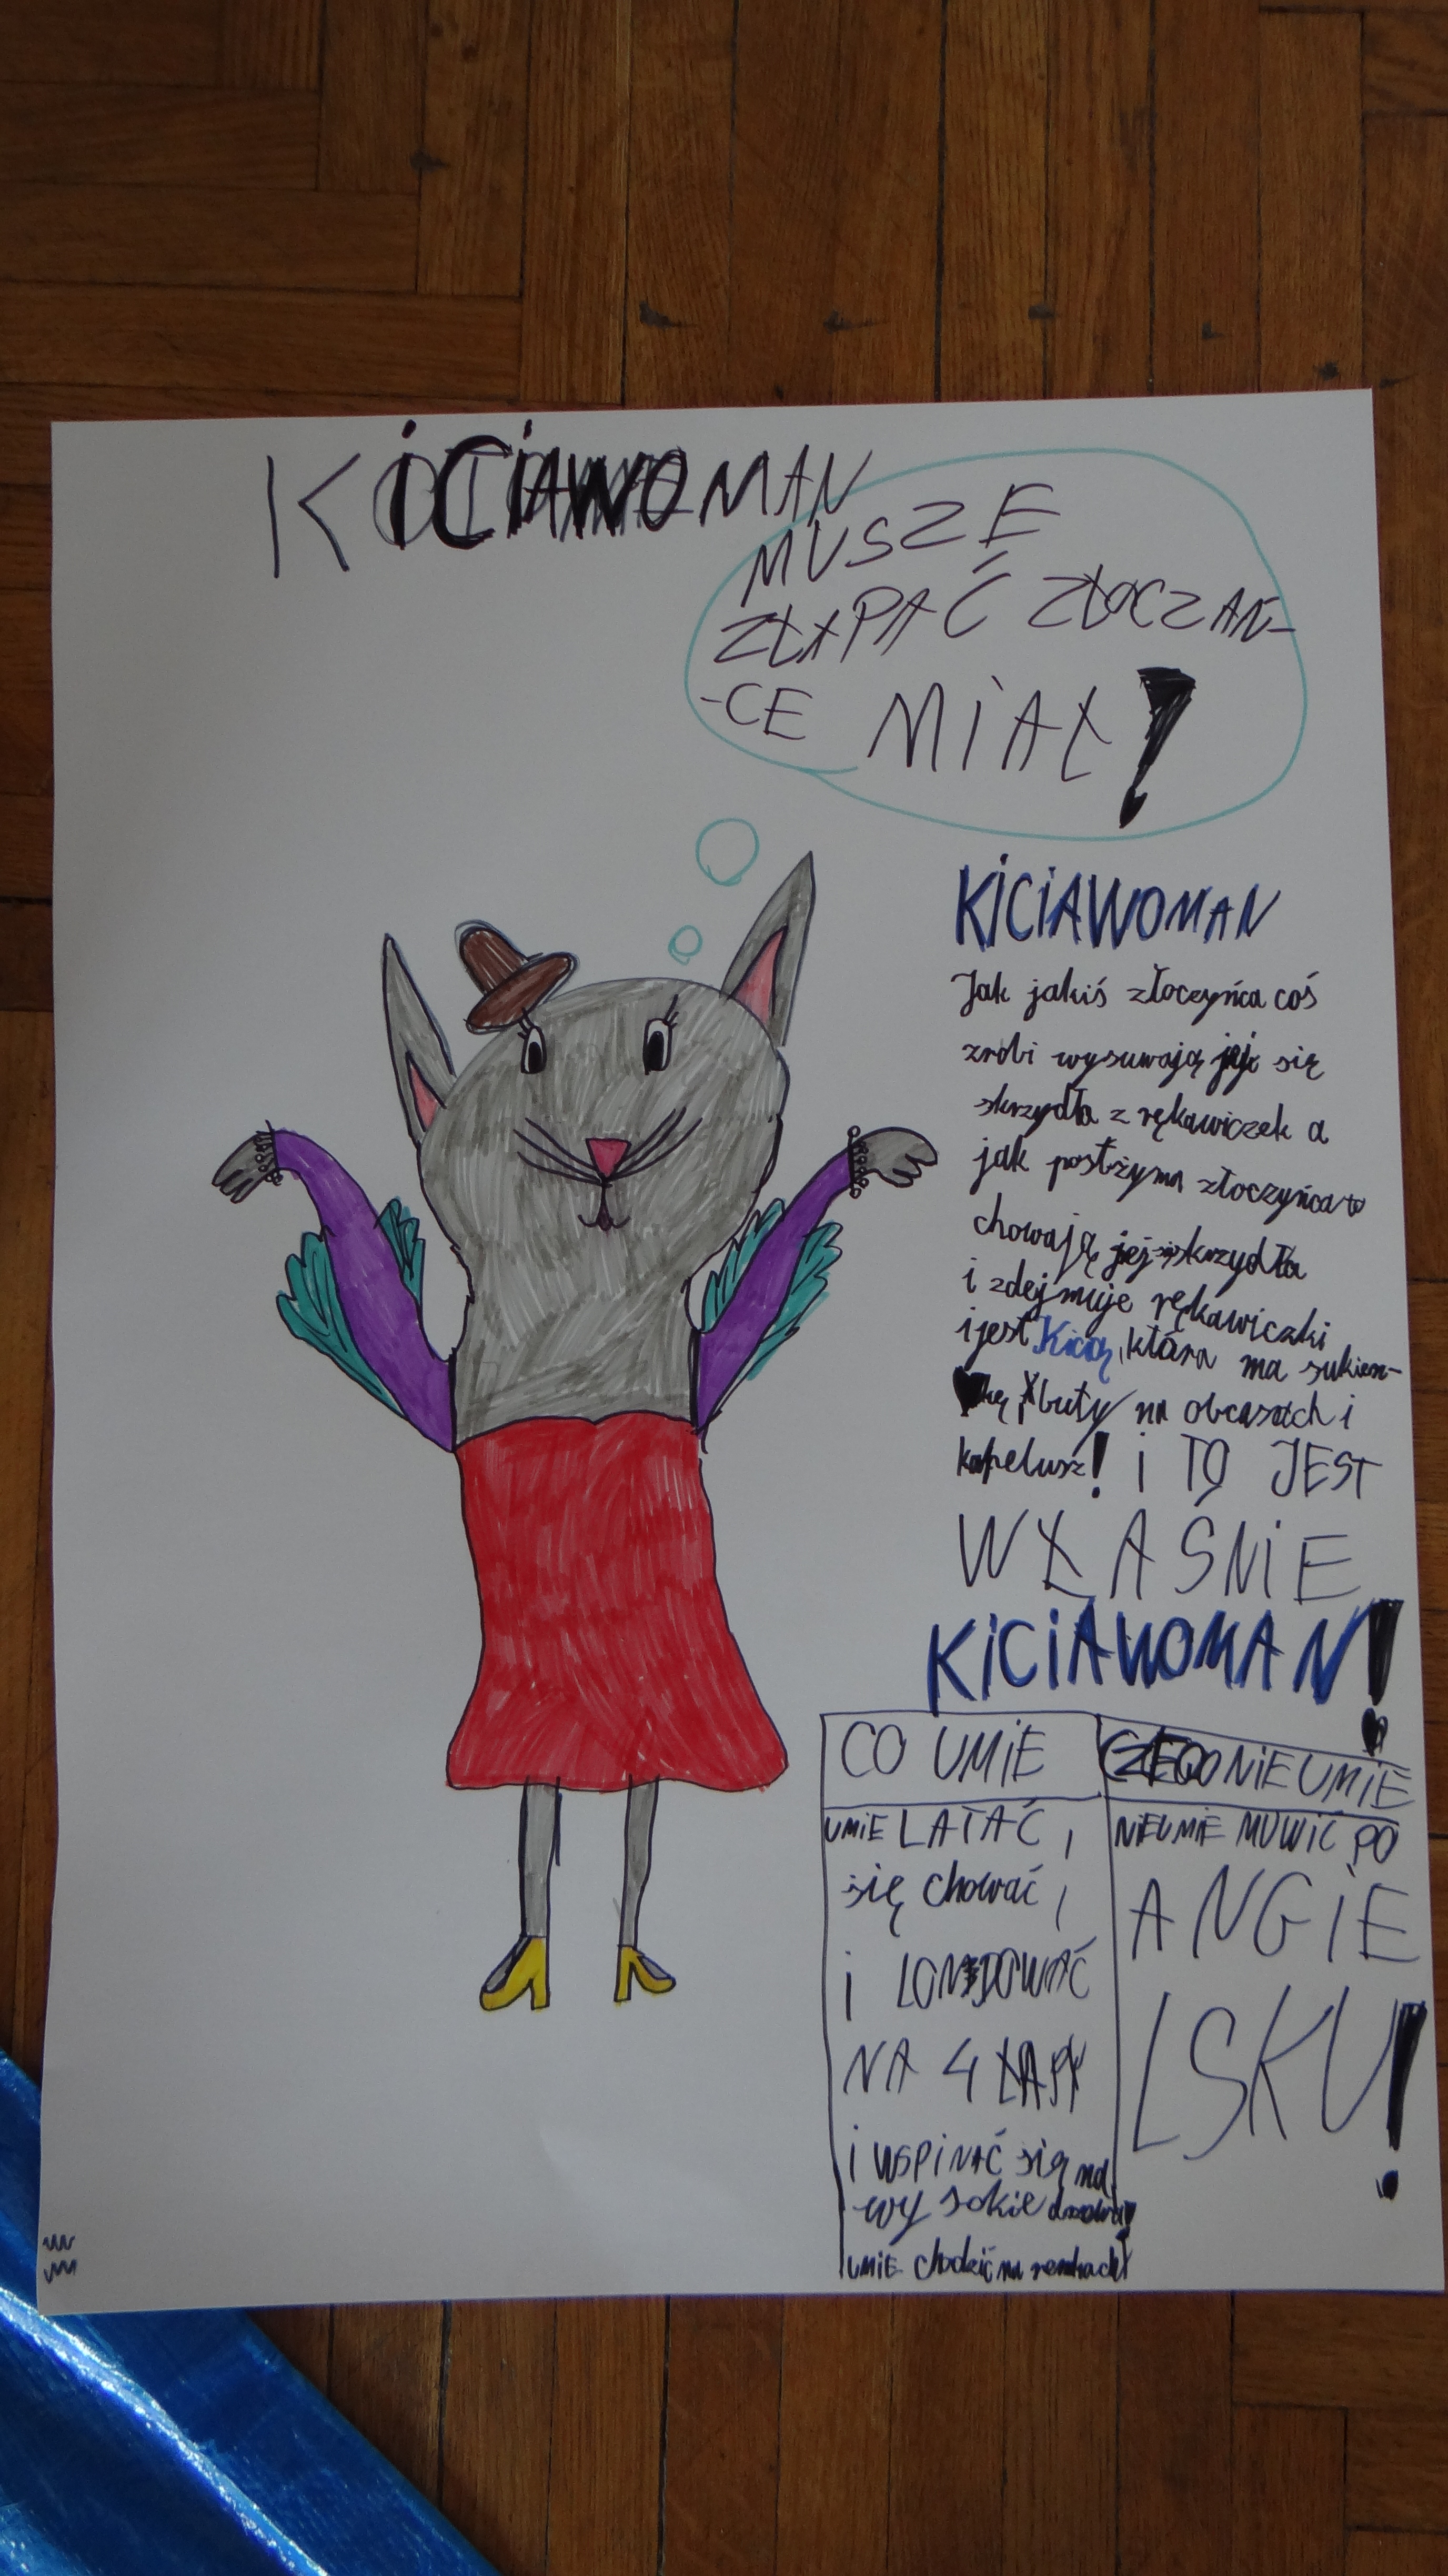 KiCiAWOMAN
MUSZE
ZŁAPAĆ ZŁOCZAŃ-
-CE MiAŁ!
KiCiAWOMAN
Jak jakiś złoczyńca coś
zrobi wysuwają jej się
skrzydła z rękawiczek a
jak postżyma złoczyńca to
chowają jej się skrzydła
i zdejmuje rękawiczki
i jest Kicią, która ma sukien-
kę, buty na obcasach i
kapelusz! i TO JEST
WŁAŚNiE
KiCiAWOMAN!
CO UMiE
CZEGO NiE UMiE
UMiE LATAĆ,
się chować,
i LONDOWAĆ
NA 4 ŁAPY
i WSPiNAĆ się na
wysokie drzewa!
UMiE chodzić na renkach!
NiEUMiE MUWiĆ PO
ANGiE
LSKU!